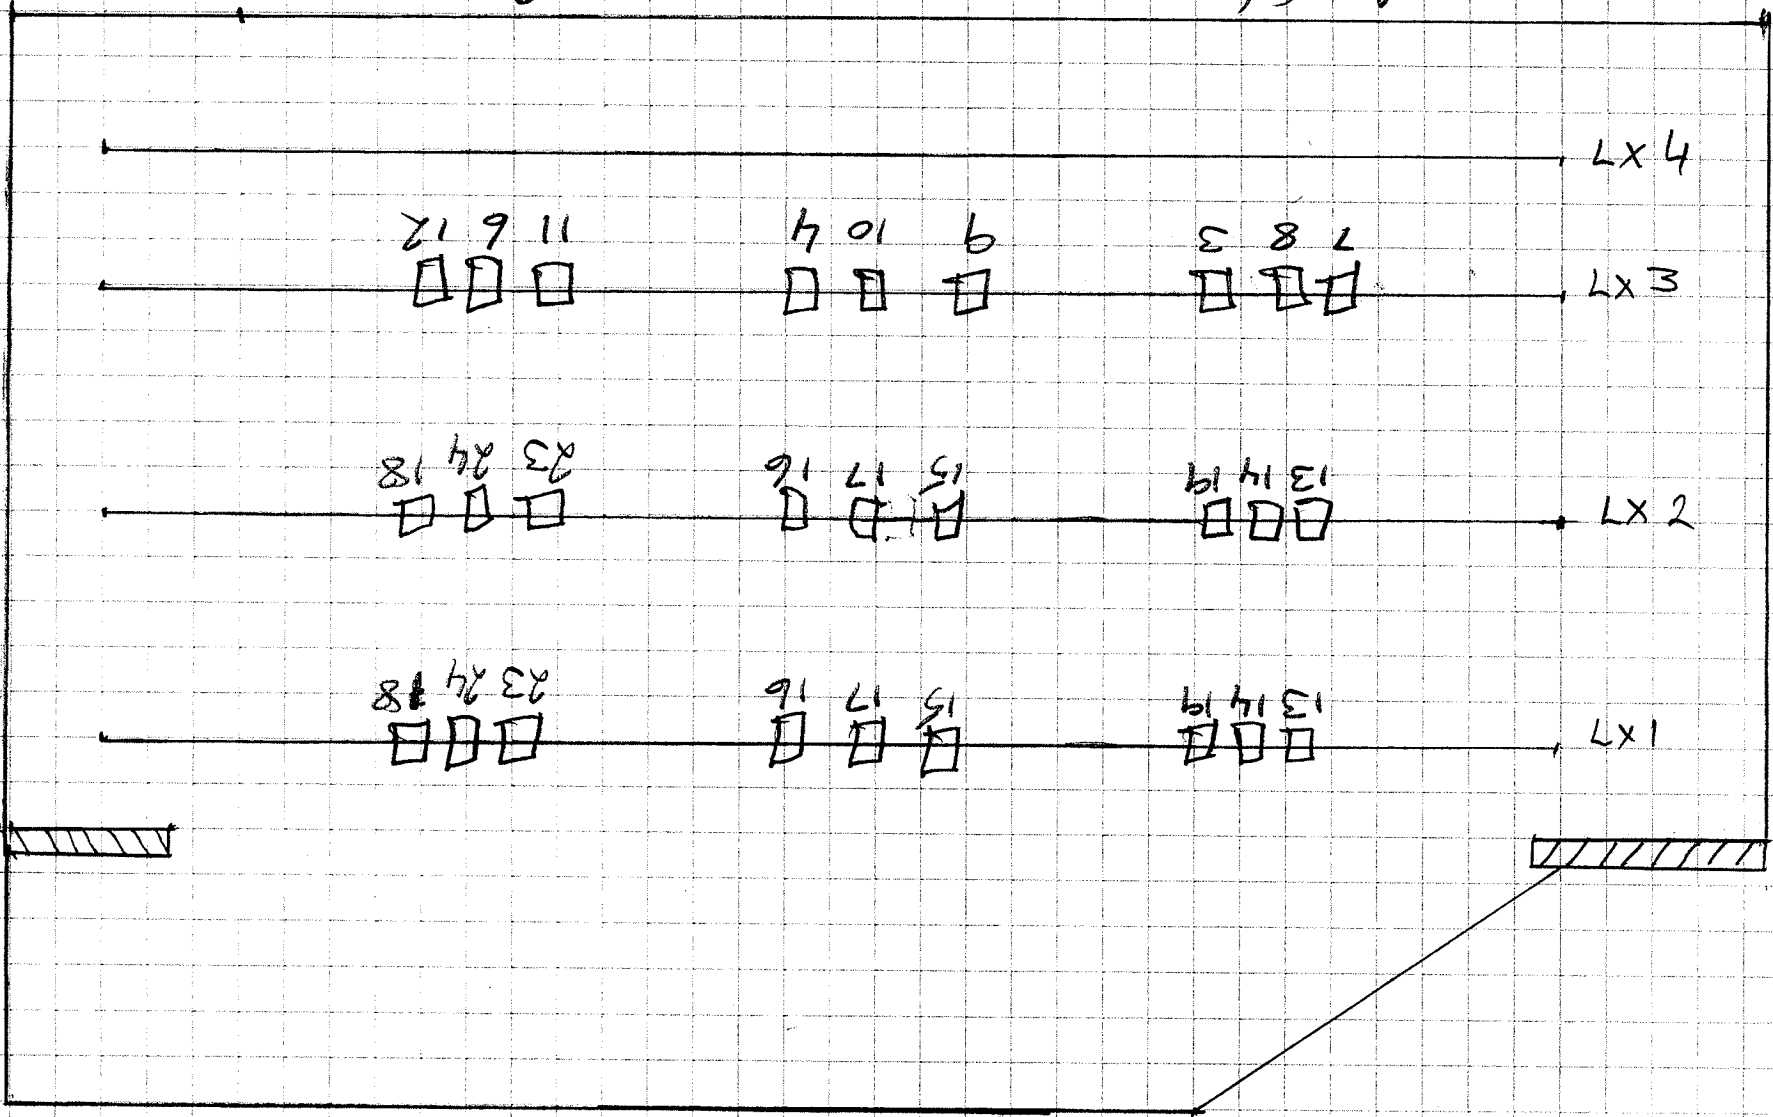 LX 4
12 6 11 4 10 9 3 8 7
LX 3
18 24 23 16 17 15 19 14 13
LX 2
18 24 23 16 17 15 19 14 13
LX 1